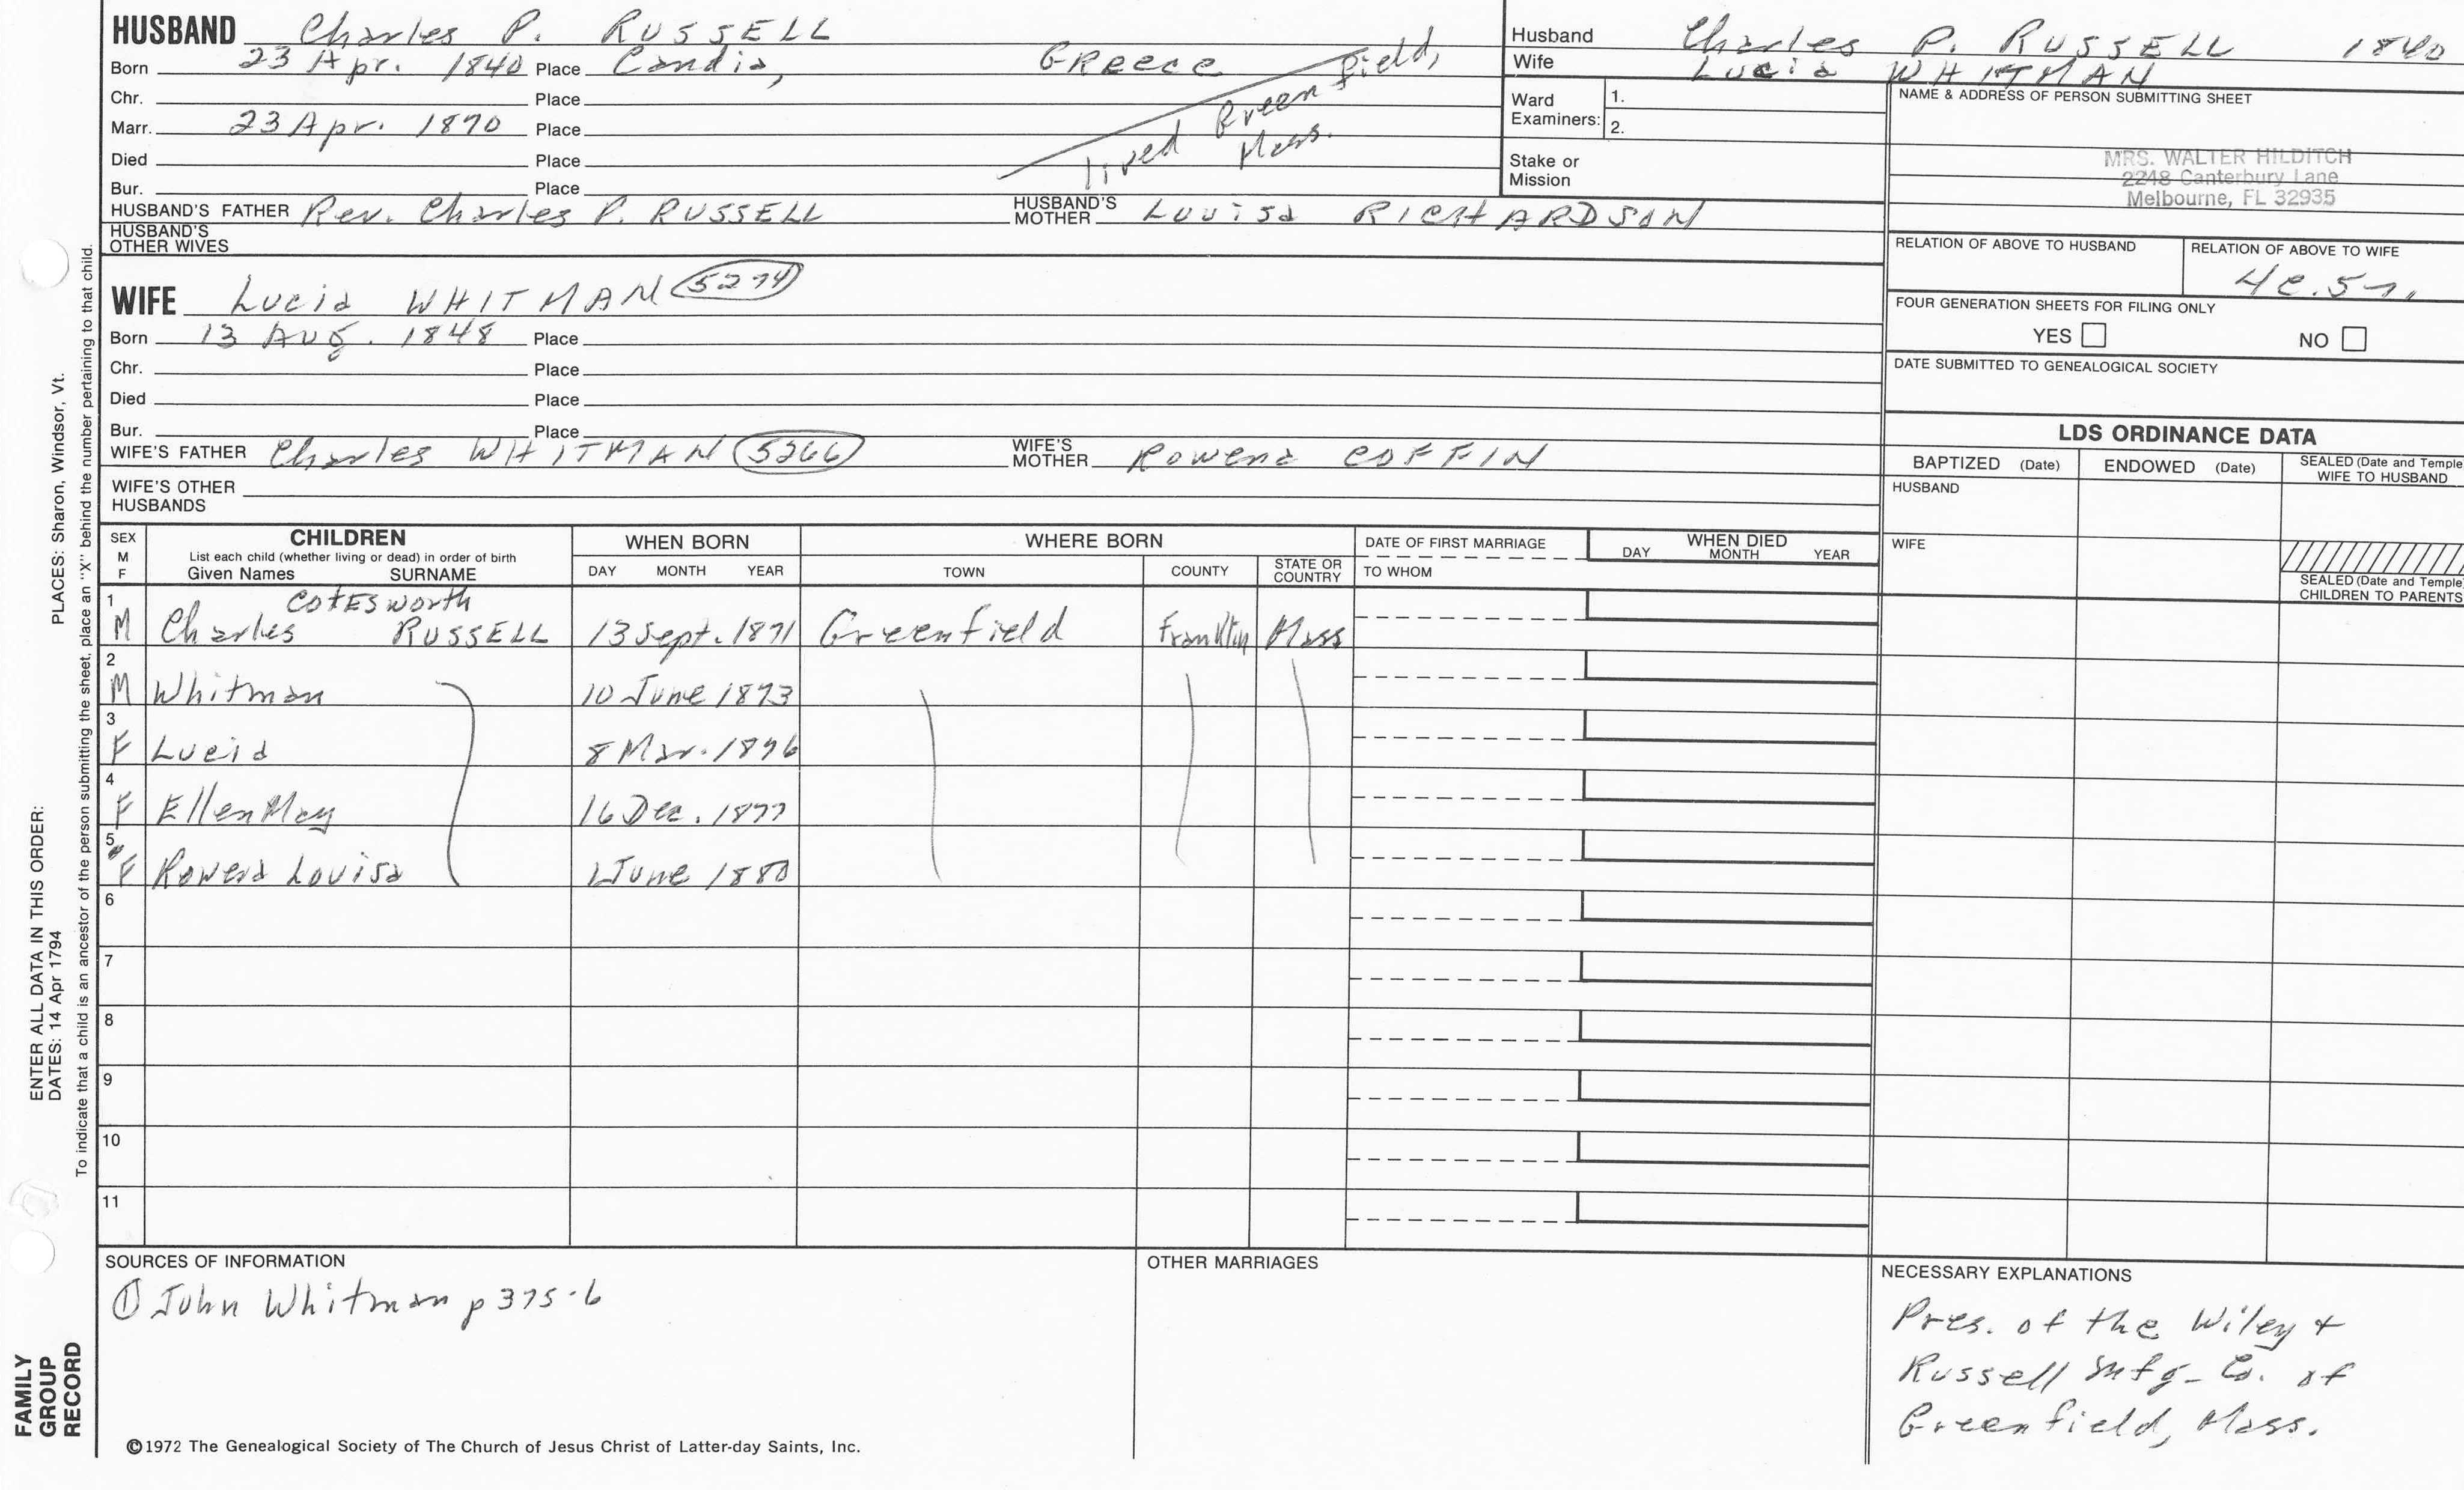 HUSBAND Charles P. RUSSELL
Born 23 Apr. 1840 Place Candia, GREECE
Chr. Place
Marr. 23 Apr. 1870 Place
Died Place
Bur. Place
lived Greenfield, Mass.
HUSBAND'S FATHER Rev. Charles P. RUSSELL HUSBAND'S MOTHER Louisa RICHARDSON
HUSBAND'S OTHER WIVES
WIFE Lucia WHITMAN 5274
Born 13 Aug. 1848 Place
Chr. Place
Died Place
Bur. Place
WIFE'S FATHER Charles WHITMAN 5266 WIFE'S MOTHER Rowena COFFIN
WIFE'S OTHER HUSBANDS
Husband Charles P. RUSSELL 1840
Wife Lucia WHITMAN
Ward Examiners: 1.
2.
Stake or Mission
NAME & ADDRESS OF PERSON SUBMITTING SHEET
MRS. WALTER HILDITCH
2248 Canterbury Lane
Melbourne, FL 32935
RELATION OF ABOVE TO HUSBAND RELATION OF ABOVE TO WIFE
FOUR GENERATION SHEETS FOR FILING ONLY
YES NO
DATE SUBMITTED TO GENEALOGICAL SOCIETY
LDS ORDINANCE DATA
BAPTIZED (Date) ENDOWED (Date) SEALED (Date and Temple) WIFE TO HUSBAND
HUSBAND
WIFE
SEALED (Date and Temple) CHILDREN TO PARENTS
SEX M F CHILDREN WHEN BORN WHERE BORN DATE OF FIRST MARRIAGE WHEN DIED
List each child (whether living or dead) in order of birth
Given Names SURNAME DAY MONTH YEAR TOWN COUNTY STATE OR COUNTRY TO WHOM DAY MONTH YEAR
1 M Charles Cotesworth RUSSELL 13 Sept. 1871 Greenfield Franklin Mass
2 M Whitman 10 June 1873
3 F Lucia 8 Mar. 1876
4 F Ellen May 16 Dec. 1877
5 F Rowena Louisa 1 June 1880
6
7
8
9
10
11
SOURCES OF INFORMATION
① John Whitman p 375-6
OTHER MARRIAGES
NECESSARY EXPLANATIONS
Pres. of the Wiley +
Russell Mfg. Co. of
Greenfield, Mass.
©1972 The Genealogical Society of The Church of Jesus Christ of Latter-day Saints, Inc.
FAMILY GROUP RECORD
ENTER ALL DATA IN THIS ORDER:
DATES: 14 Apr 1794 PLACES: Sharon, Windsor, Vt.
To indicate that a child is an ancestor of the person submitting the sheet, place an "X" behind the number pertaining to that child.